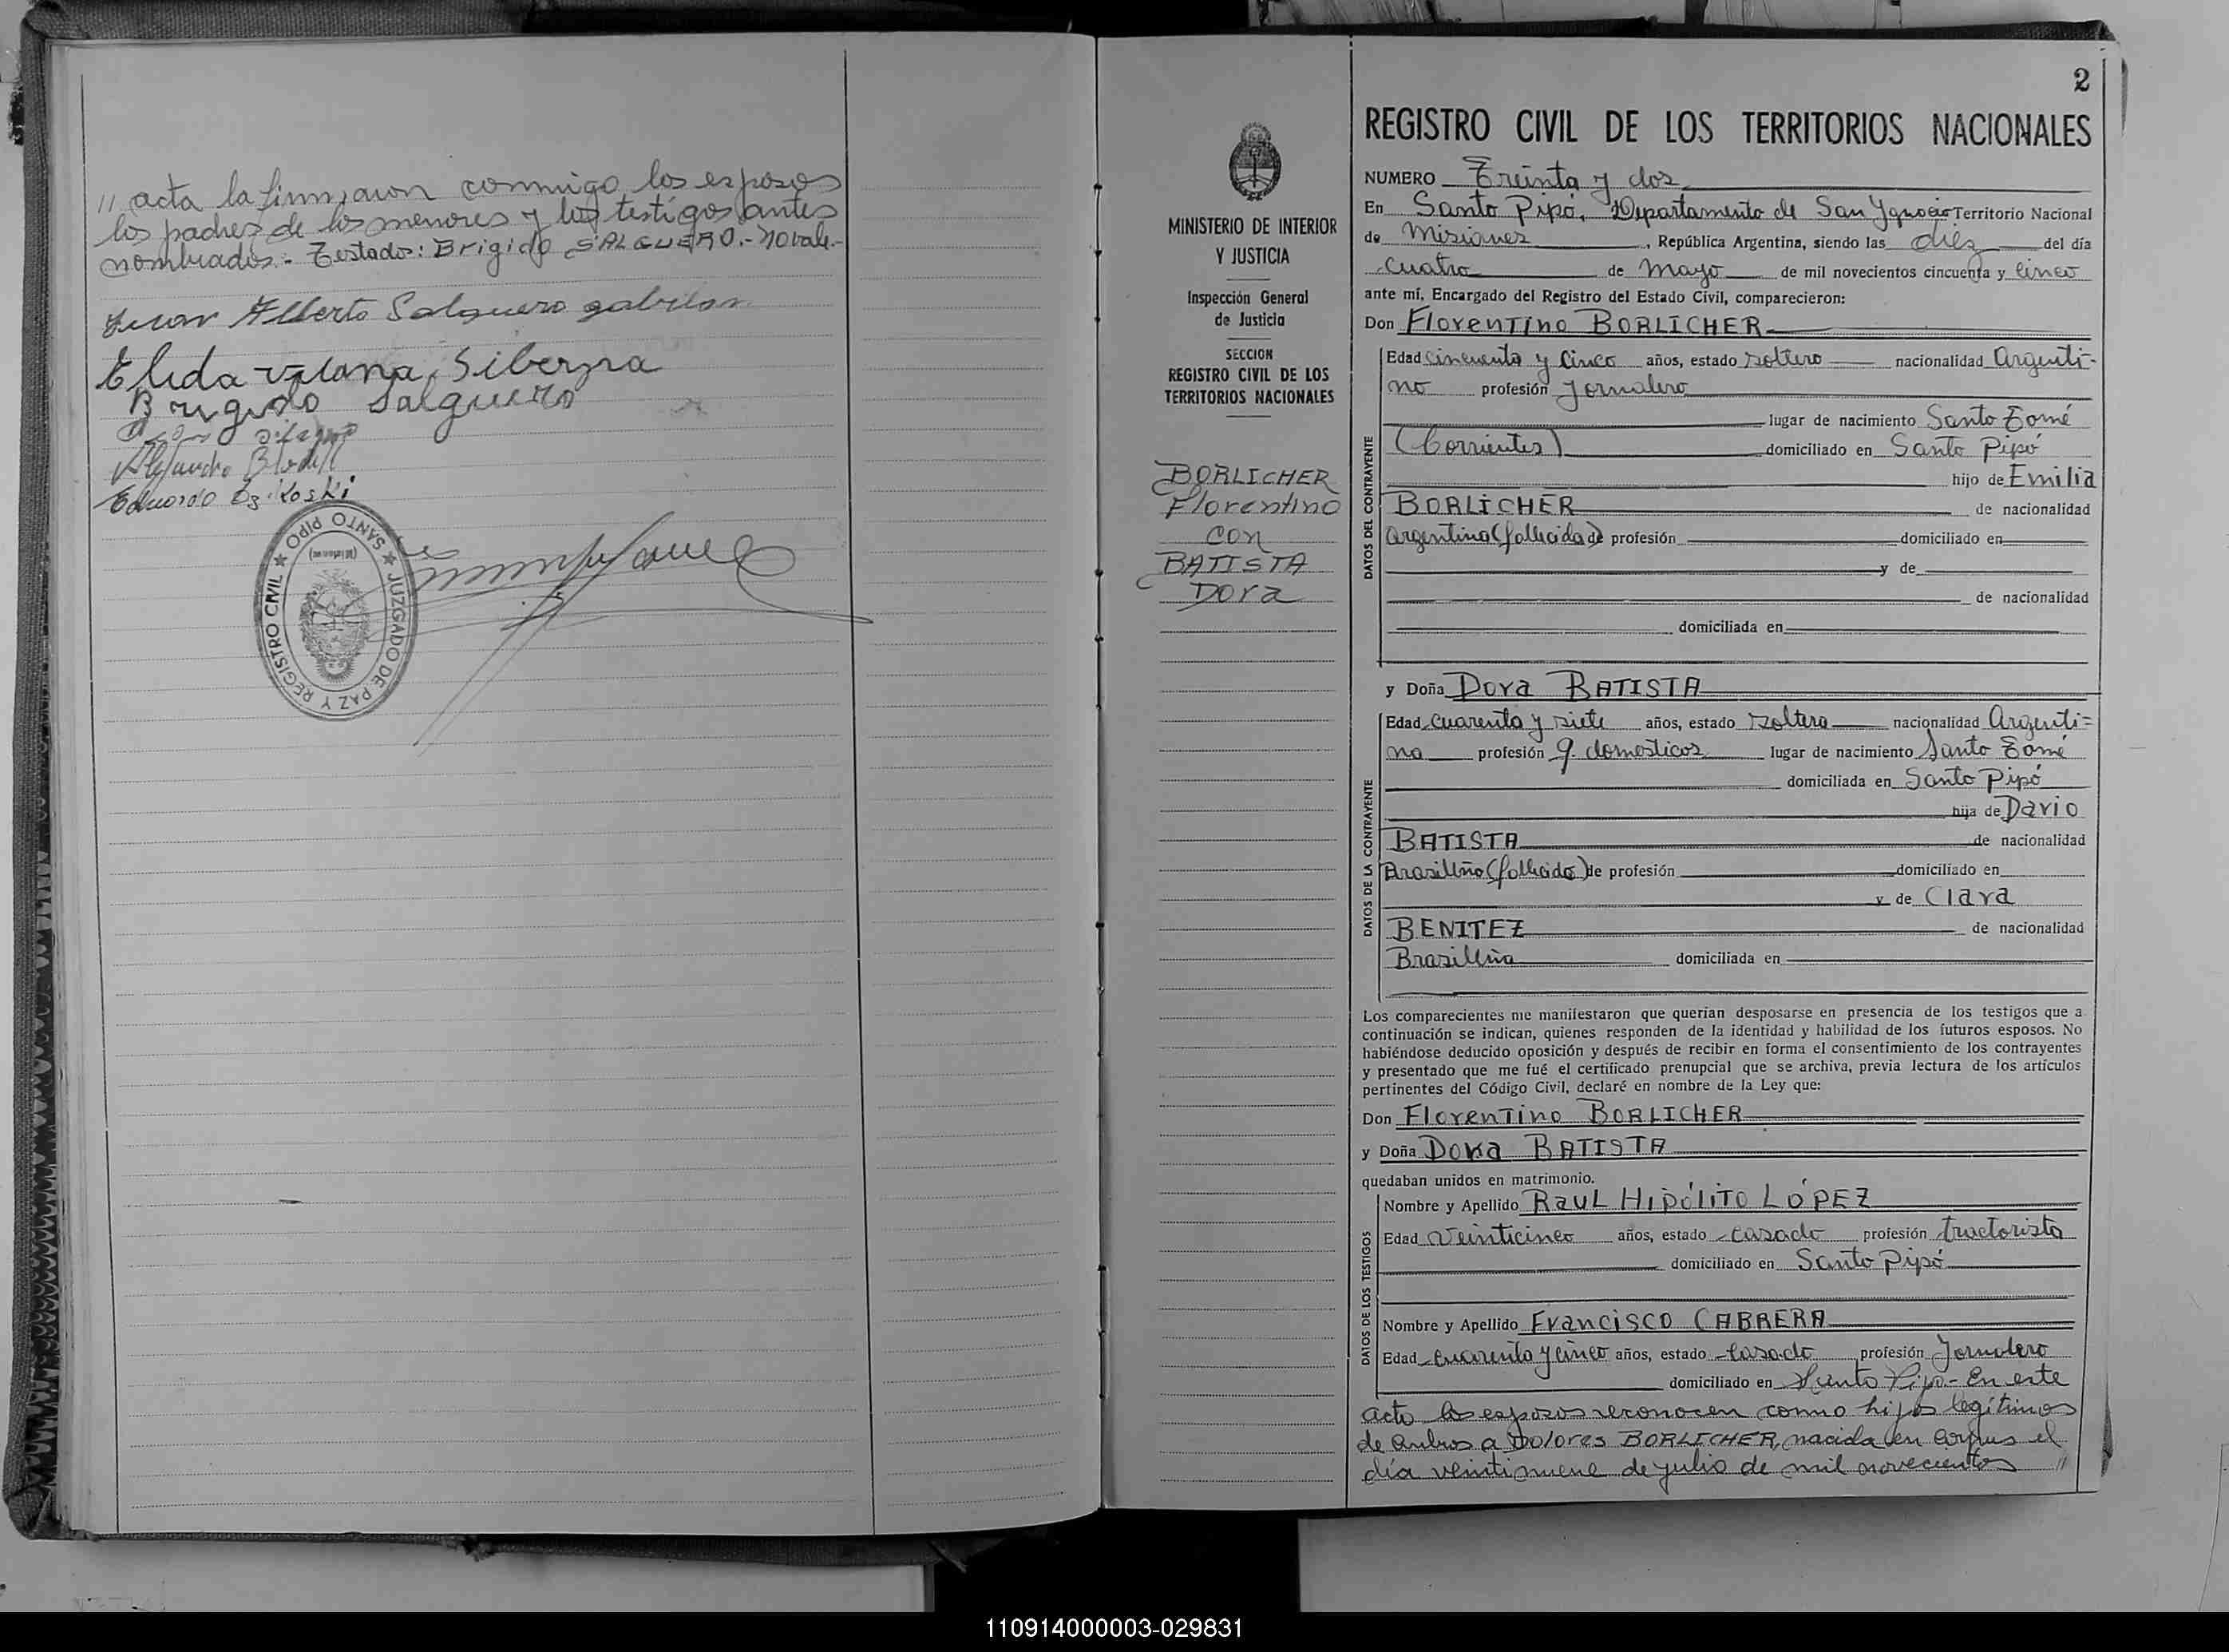 // acta la firmaron conmigo los esposos
los padres de los menores y los testigos antes
nombrados.- Testado: Brigido SALGUERO.- No vale.-
Juan Alberto Salguero gabilan
Elida
Brigido Salguero
Alejandro
Eduardo
SANTO PIPO ★ JUZGADO DE PAZ Y REGISTRO CIVIL ★
2
REGISTRO CIVIL DE LOS TERRITORIOS NACIONALES
MINISTERIO DE INTERIOR
Y JUSTICIA
Inspección General
de Justicia
SECCION
REGISTRO CIVIL DE LOS
TERRITORIOS NACIONALES
BORLICHER
Florentino
con
BATISTA
Dora
NUMERO Treinta y dos
En Santo Pipó, Departamento de San Ygnacio Territorio Nacional
de Misiones, República Argentina, siendo las diez del día
cuatro de Mayo de mil novecientos cincuenta y cinco
ante mí, Encargado del Registro del Estado Civil, comparecieron:
Don Florentino BORLICHER
DATOS DEL CONTRAYENTE
Edad cincuenta y cinco años, estado soltero nacionalidad Argenti-
no profesión Jornalero
lugar de nacimiento Santo Tomé
(Corrientes) domiciliado en Santo Pipó
hijo de Emilia
BORLICHER de nacionalidad
Argentina (fallecida) de profesión domiciliado en
y de
de nacionalidad
domiciliada en
y Doña Dora BATISTA
DATOS DE LA CONTRAYENTE
Edad cuarenta y siete años, estado soltera nacionalidad Argenti=
na profesión q. domesticos lugar de nacimiento Santo Tomé
domiciliada en Santo Pipó
hija de Dario
BATISTA de nacionalidad
Brasilleño (fallecido) de profesión domiciliado en
y de Clara
BENITEZ de nacionalidad
Brasilleña domiciliada en
Los comparecientes me manifestaron que querían desposarse en presencia de los testigos que a
continuación se indican, quienes responden de la identidad y habilidad de los futuros esposos. No
habiéndose deducido oposición y después de recibir en forma el consentimiento de los contrayentes
y presentado que me fué el certificado prenupcial que se archiva, previa lectura de los artículos
pertinentes del Código Civil, declaré en nombre de la Ley que:
Don Florentino BORLICHER
y Doña Dora BATISTA
quedaban unidos en matrimonio.
DATOS DE LOS TESTIGOS
Nombre y Apellido Raul HIPÓLITO LÓPEZ
Edad Veinticinco años, estado casado profesión tractorista
domiciliado en Santo Pipó
Nombre y Apellido Francisco CABRERA
Edad cuarenta y cinco años, estado casado profesión Jornalero
domiciliado en Santo Pipo.- En este
acto los esposos reconocen como hijos legítimos
de ambos a Dolores BORLICHER, nacida en Corpus el
día veintinueve de julio de mil novecientos //
110914000003-029831